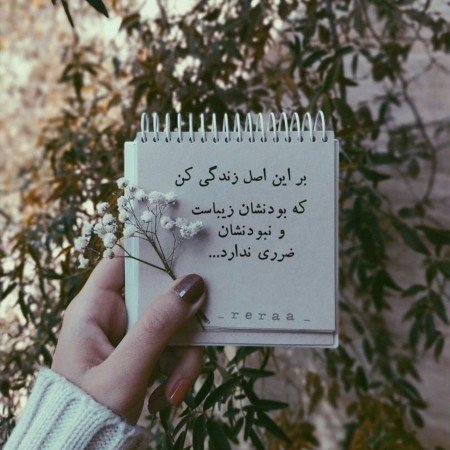 بر این اصل زندگی کن
که بودنشان زیباست
و نبودنشان
ضرری ندارد...
_ reraa _